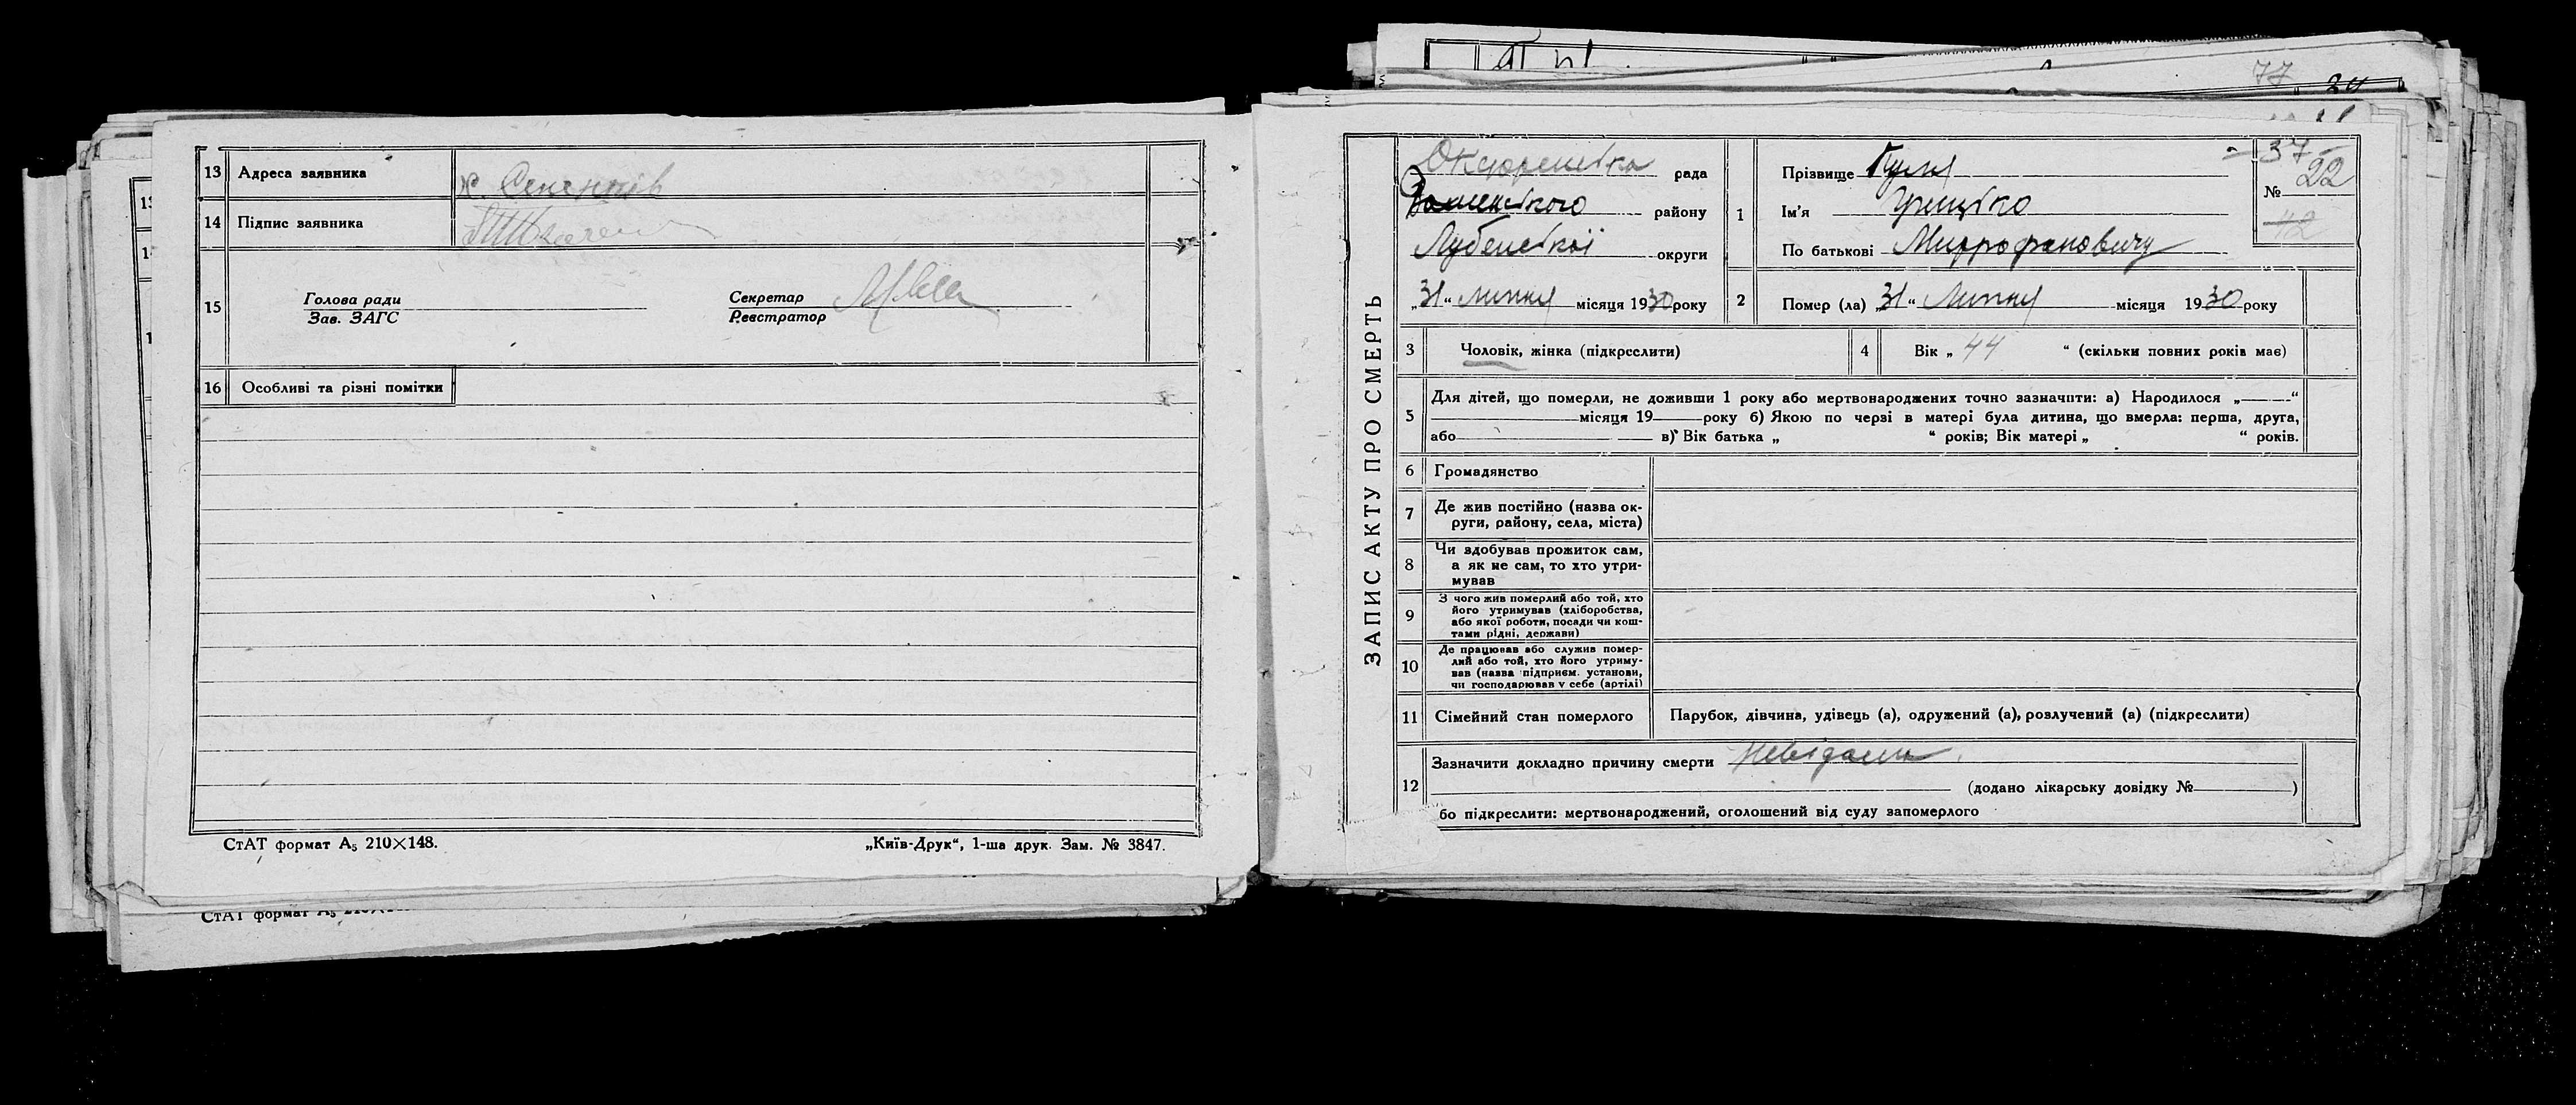 13 Адреса заявника х.
14 Підпис заявника
15 Голова ради
Зав. ЗАГС
Секретар
Реєстратор
16 Особливі та різні помітки
СтАТ формат А₅ 210×148.
„Київ-Друк“, 1-ша друк. Зам. № 3847.
СтАТ формат А₅
77
ЗАПИС АКТУ ПРО СМЕРТЬ
рада
району
Лубенської округи
„31“ Липня місяця 1930 року
1 Прізвище Гуля
Ім'я Грицько
По батькові Митрофанович
37
№ 22
42
2 Помер (ла) „31“ Липня місяця 1930 року
3 Чоловік, жінка (підкреслити)
4 Вік „ 44 “ (скільки повних років має)
5 Для дітей, що померли, не доживши 1 року або мертвонароджених точно зазначити: а) Народилося „ “
місяця 19 року б) Якою по черзі в матері була дитина, що вмерла: перша, друга,
або в) Вік батька „ “ років; Вік матері „ “ років.
6 Громадянство
7 Де жив постійно (назва ок-
руги, району, села, міста)
8 Чи здобував прожиток сам,
а як не сам, то хто утри-
мував
9 З чого жив померлий або той, хто
його утримував (хліборобства,
або якої роботи, посади чи кош-
тами рідні, держави)
10 Де працював або служив помер-
лий або той, хто його утриму-
вав (назва підприєм. установи,
чи господарював у себе (артілі)
11 Сімейний стан померлого Парубок, дівчина, удівець (а), одружений (а), розлучений (а) (підкреслити)
12 Зазначити докладно причину смерти Невідома
(додано лікарську довідку № )
бо підкреслити: мертвонароджений, оголошений від суду запомерлого